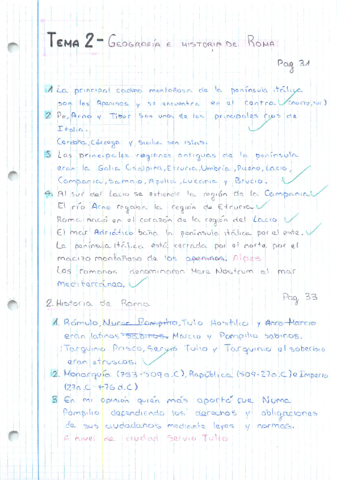 TEMA 2- GEOGRAFÍA E HISTORIA DE ROMA
Pag 31
1 La principal cadena montañosa de la península itálica
son los Apeninos y se encuentra en el centro. (norte, sur)
2 Po, Arno y Tiber son uno de los principales ríos de
Italia.
Cerdeña, Córcega y Sicilia son islas.
3 Las principales regiones antiguas de la península
eran la Galia Cisalpina, Etruria, Umbría, Piceno, Lacio,
Campania, Samnio, Apulia, Lucania y Brucio.
4. Al sur del Lacio se extiende la región de la Campania
El río Arno regaron la región de Etruria
Roma nació en el corazón de la región del Lacio
El mar Adriático baña la península itálica por el este.
La península itálica está cerrada por el norte por el
macizo montañoso de los apeninos. Alpes
Los romanos denominaron Mare Nostrum al mar
Mediterráneo.
Pag 33
2. Historia de Roma
1. Rómulo, Numa Pompilio, Tulo Hostilio y Anco Marcio
eran latinos sabinos. Marcio y Pompilio sabinos.
Tarquinio Prisco, Servio Tulio y Tarquinio el soberbio
eran etruscos.
2. Monarquía (753-509a.C), República (509-27a.C) e Imperio
(27a.C - 476 d.C)
3 En mi opinión quién más aportó fue Numa
Pompilio defendiendo los derechos y obligaciones
de sus ciudadanos mediante leyes y normas.
A nivel de ciudad Servio Tulio